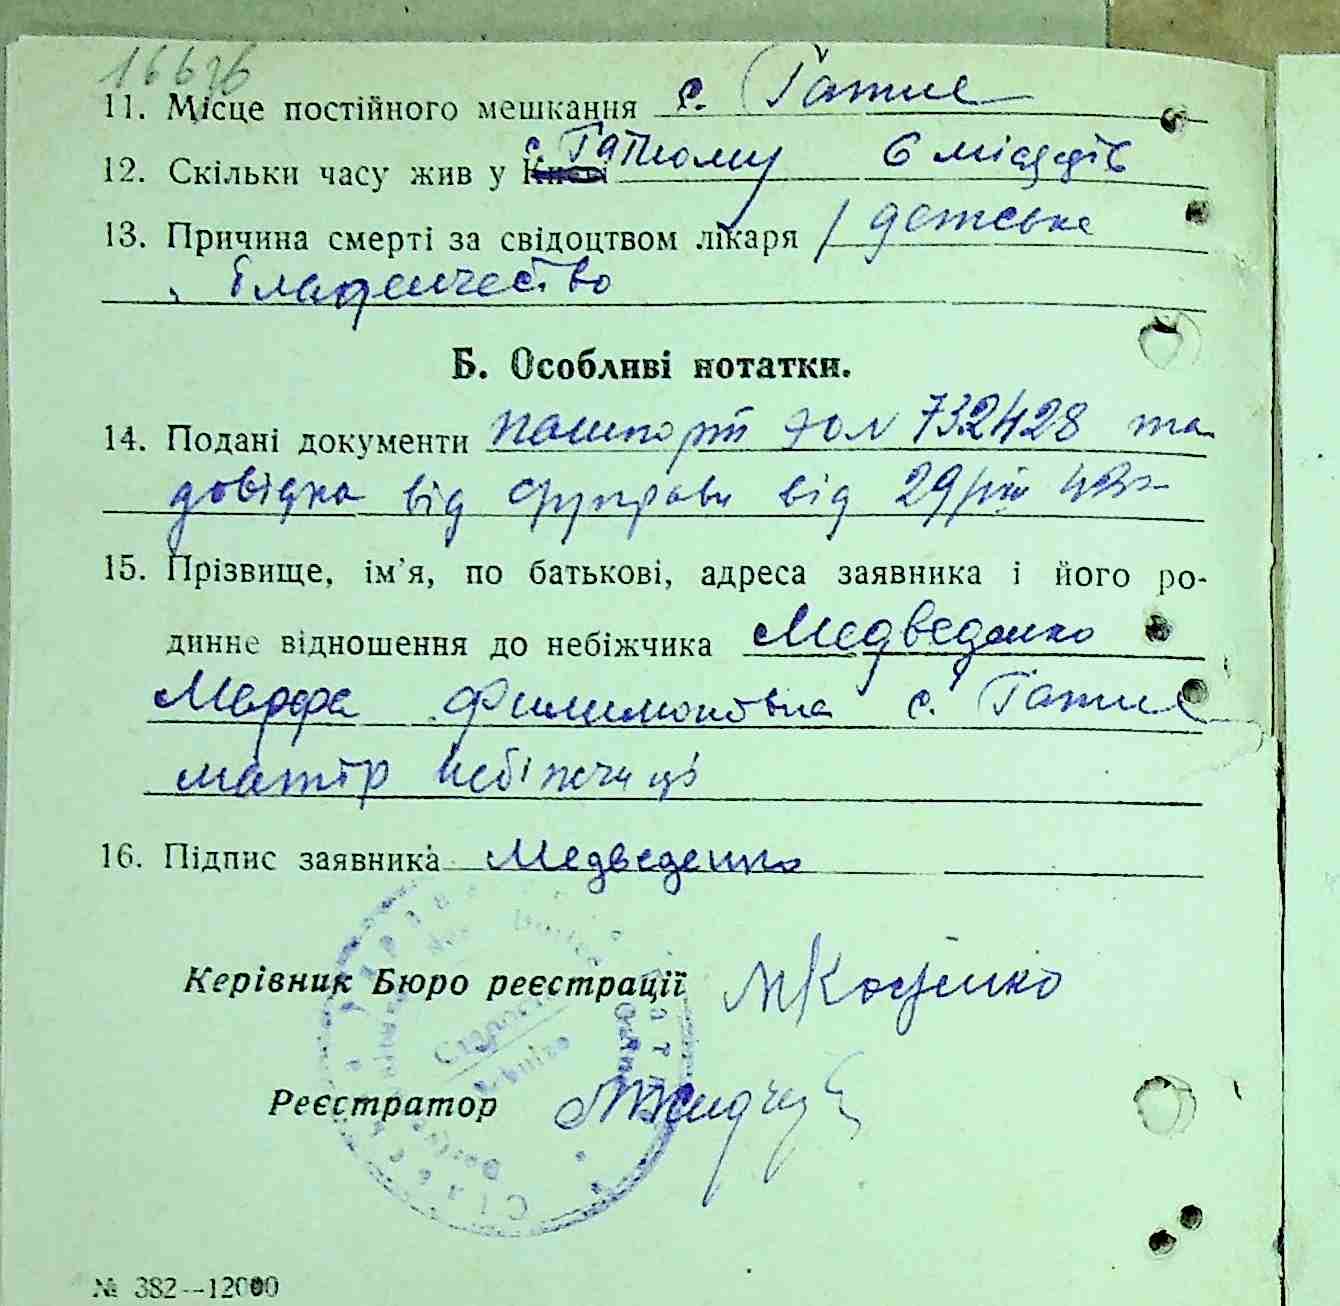 166
11. Місце постійного мешкання с. Гатне
12. Скільки часу жив у Києві с. Гатному 6 місяців
13. Причина смерті за свідоцтвом лікаря / детське
младенчество
Б. Особливі нотатки.
14. Подані документи пашпорт 732428 та
довідка від від 29/
15. Прізвище, ім'я, по батькові, адреса заявника і його ро-
динне відношення до небіжчика Медведенко
Марфа Филимоновна с. Гатне
матір небіжчиці
16. Підпис заявника Медведенко
Керівник Бюро реєстрації
Реєстратор
№ 382—12000